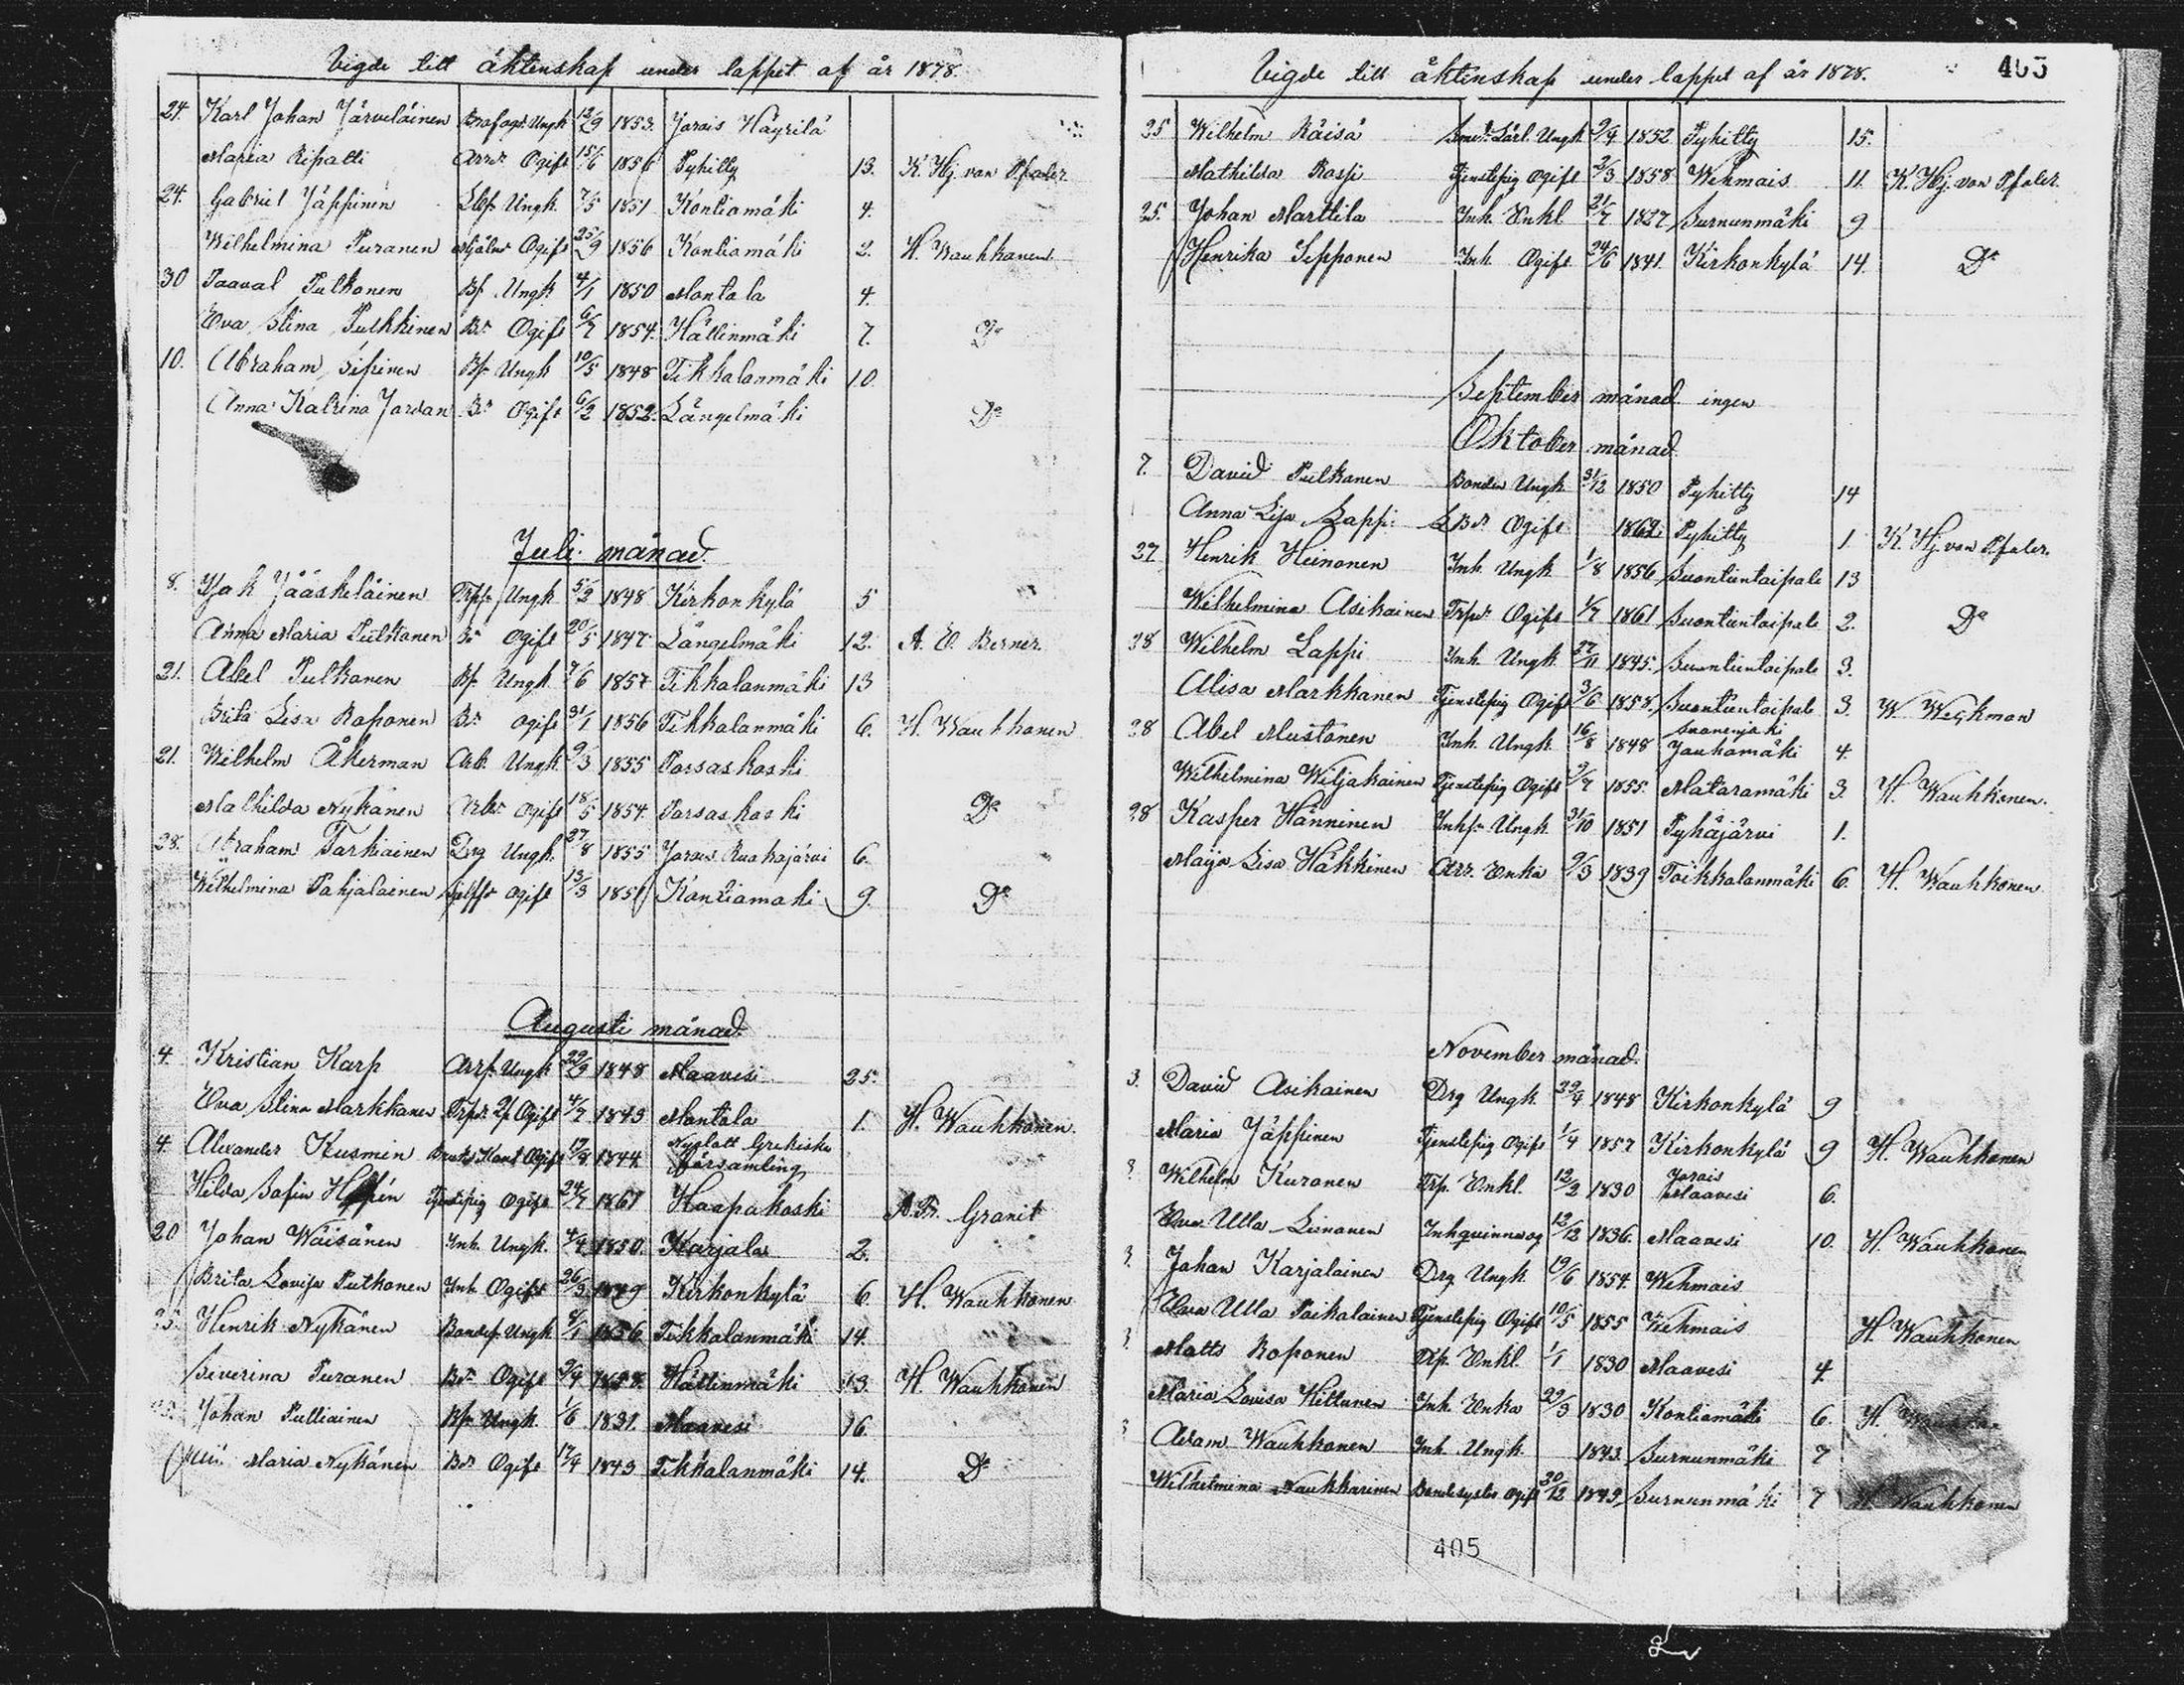 Vigde till äktenskap under loppet af år 1878.
24. Karl Johan Järveläinen Ungk 12/9 1853. Jorois Häyrilä
Maria Ripatti Ogift 15/6 1856 Pyhitty 13. K. Hj. von Pfaler
24. Gabriel Jäppinen Ungk. 7/5 1851 Kontiomäki 4.
Wilhelmina Puranen Ogift 25/9 1856 Kontiomäki 2. H. Wauhkonen
30 Paaval Pulkonen Bf Ungk 4/1 1850 Montola 4.
Eva Stina Pulkkinen Bdr Ogift 6/7 1854. Hällinmäki 7. Do
10. Abraham Sipinen Bf. Ungk 10/5 1848 Tikkalanmäki 10.
Anna Katrina Jordan Bdr Ogift 6/2 1852. Längelmäki Do
Juli månad.
8. Isak Jääskeläinen Trpf. Ungk 5/2 1848 Kirkonkylä 5
Anna Maria Pulkonen Bdr Ogift 20/5 1847 Längelmäki 12. A. E. Berner.
21. Abel Pulkonen Bf. Ungk 7/6 1857 Tikkalanmäki 13
Brita Lisa Roponen Bdr ogift 31/1 1856 Tikkalanmäki 6. H. Wauhkonen
21. Wilhelm Åkerman Arb. Ungk. 9/3 1855 Porsaskoski
Mathilda Nykänen Ogift 18/5 1854. Porsaskoski Do
28. Abraham Tarkiainen Drg Ungk. 27/8 1855 Jorois Ruokojärvi 6.
Wilhelmina Pahjalainen ogift 13/3 1856 Kontiomäki 9. Do
Augusti månad.
4. Kristian Karp Arrf. Ungk 29/9 1848 Maavesi 25.
Eva Stina Markkanen Ogift 4/7 1849 Montola 1. H. Wauhkonen.
4. Alexander Kusmin 1844. Nyslott Grekiska församling
Hilda Sofia 24/7 1861 Haapakoski Granit
20 Johan Wäisänen Inh. Ungk. 4/4 1850. Karjala 2.
Brita Lovisa Putkonen Inh. Ogift 26/3 1849 Kirkonkylä 6. H. Wauhkonen
25. Henrik Nykänen Bondef. Ungk 1856 Tikkalanmäki 14.
Severina Puranen Bdr. Ogift 9/4 Hällinmäki 13. H. Wauhkonen
Johan Pulliainen Bf. Ungk. 1/6 1831. Maavesi 16.
Maria Nykänen Bdr Ogift 17/4 1849 Tikkalanmäki 14. Do
Vigde till äktenskap under loppet af år 1878.
405
25 Wilhelm Räisä Ungk 9/4 1852 Pyhitty 15.
Mathilda Raspi Tjenstepig Ogift 2/3 1858 Wehmais 11. K. Hj. von Pfaler.
25. Johan Marttila Inh. Enkl 21/7 1827 Surnunmäki 9
Henrika Sepponen Inh. Ogift 24/6 1841. Kirkonkylä 14. Do
September månad ingen
Oktober månad
7. David Pulkonen Bonden Ungk 31/12 1850 Pyhitty 14
Anna Lisa Lappi Ogift 1862. Pyhitty 1. K. Hj. von Pfaler.
27. Henrik Heinonen Inh. Ungk 1/8 1856 Suontientaipale 13
Wilhelmina Asikainen Trpdr Ogift 1/7 1861 Suontientaipale 2. Do
28 Wilhelm Lappi Inh. Ungk. 27/11 1845. Suontientaipale 3.
Alisa Markkanen Tjenstepig Ogift 3/6 1858. Suontientaipale 3. W. Weckman
28 Abel Mustonen Inh. Ungk. 16/8 1848 Suonenjoki Jauhomäki 4.
Wilhelmina Wiljakainen Tjenstepig Ogift 9/7 1855. Mataramäki 3. H. Wauhkonen.
28 Kasper Hänninen Inhf. Ungk. 31/10 1851 Pyhäjärvi 1.
Maija Lisa Häkkinen Arr. Enka 9/3 1839 Toikkalanmäki 6. H. Wauhkonen
November månad.
3. David Asikainen Drg Ungk. 29/4 1848 Kirkonkylä 9
Maria Jäppinen Tjenstepig Ogift 1/4 1857 Kirkonkylä 9 H. Wauhkonen
Wilhelm Kuronen Trp. Enkl. 12/2 1830 Jorois Maavesi 6.
Eva Ulla Linonen Inhqvinna og 12/12 1836. Maavesi 10. H. Wauhkonen
3. Johan Karjalainen Drg Ungk. 19/6 1854. Wehmais
Eva Ulla Paikalainen Tjenstepig Ogift 10/5 1855 Wehmais H. Wauhkonen
3. Matts Roponen Trp. Enkl. 1/1 1830 Maavesi 4.
Maria Lovisa Kittunen Inh. Enka 29/3 1830 Kontiomäki 6. H.
Adam Wauhkonen Inh. Ungk. 1843. Surnunmäki 7
Wilhelmina Naukkarinen Bondesyster Ogift 20/12 1849 Surnunmäki 7 H. Wauhkonen
405